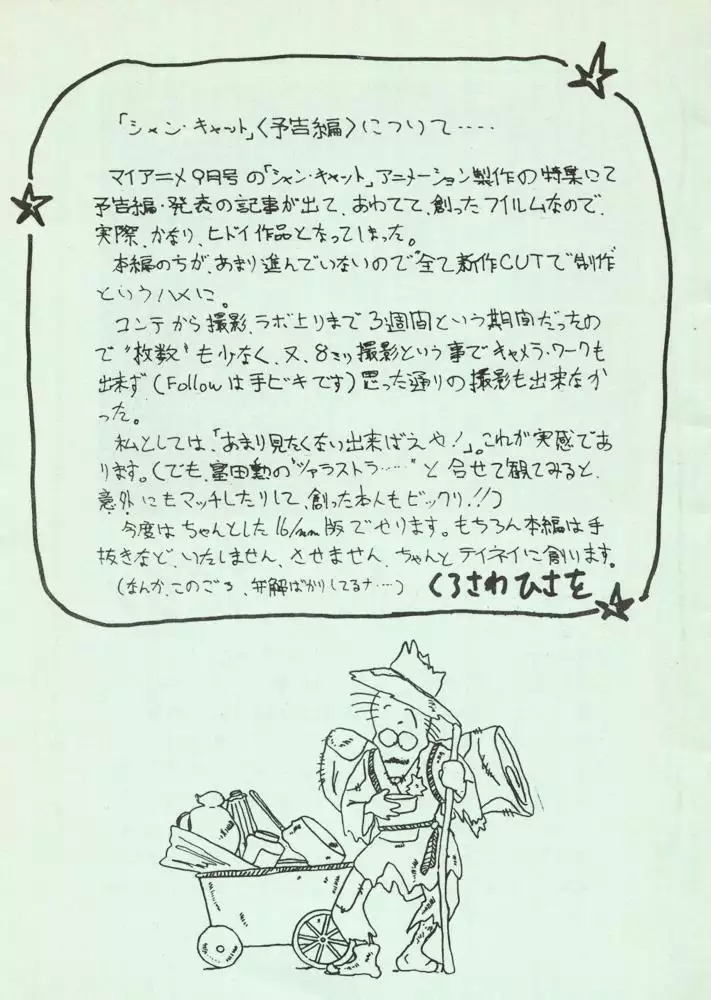 「シャン・キャット」〈予告編〉について‥‥‥
マイアニメ9月号の「シャン・キャット」アニメーション製作の特集にて
予告編・発表の記事が出て、あわてて、創ったフイルムなので、
実際、かなり、ヒドイ作品となってしまった。
本編のちが、あまり進んでいないので"全て新作CUTで"制作
というハメに。
コンテから撮影、ラボ上りまで3週間という期間だったの
で"枚数"も少なく、又、8ミリ撮影という事でキャメラ・ワークも
出来ず(Followは手ビキです)思った通りの撮影も出来なか
った。
私としては、「あまり見たくない出来ばえや!」。これが実感であ
ります。(でも、冨田勲の"ツァラストラ‥‥"と合せて観てみると、
意外にもマッチしたりして、創った本人もビックリ!!)
今度はちゃんとした16/mm版でやります。もちろん本編は手
抜きなど、いたしません、させません、ちゃんとテイネイに創ります。
(なんか、このごろ、弁解ばかりしてるナ‥‥)
くろさわひさを